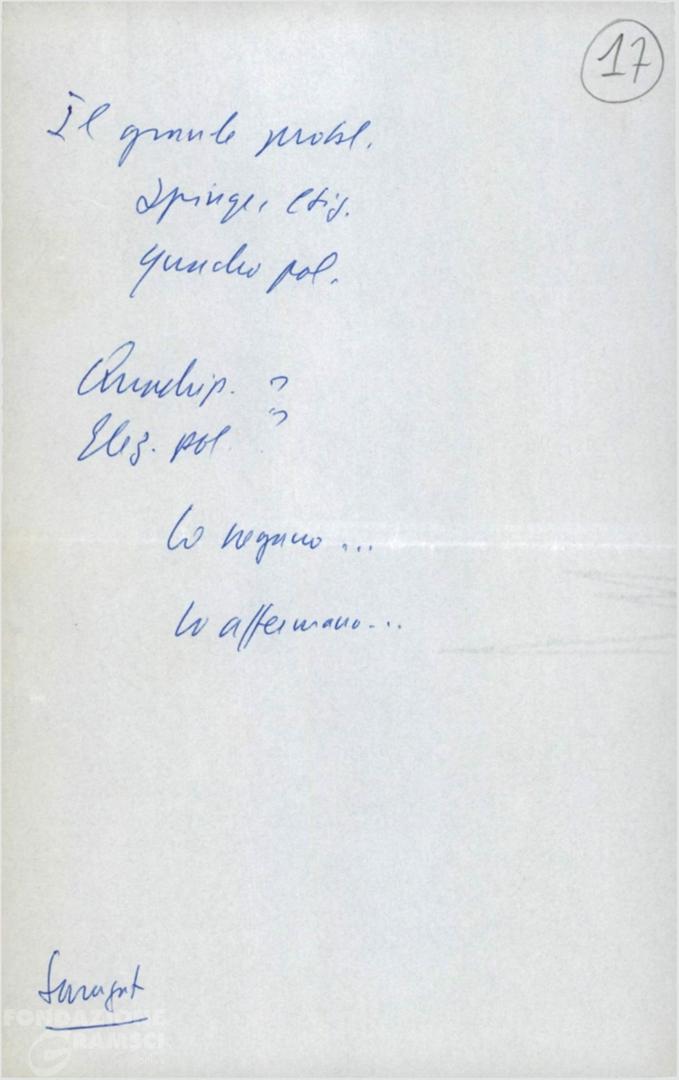 17
Il grande probl.
quadro pol.
Quadrip. ?
Elez. pol. ?
lo negano...
lo affermano...
Saragat
FONDAZIONE
GRAMSCI